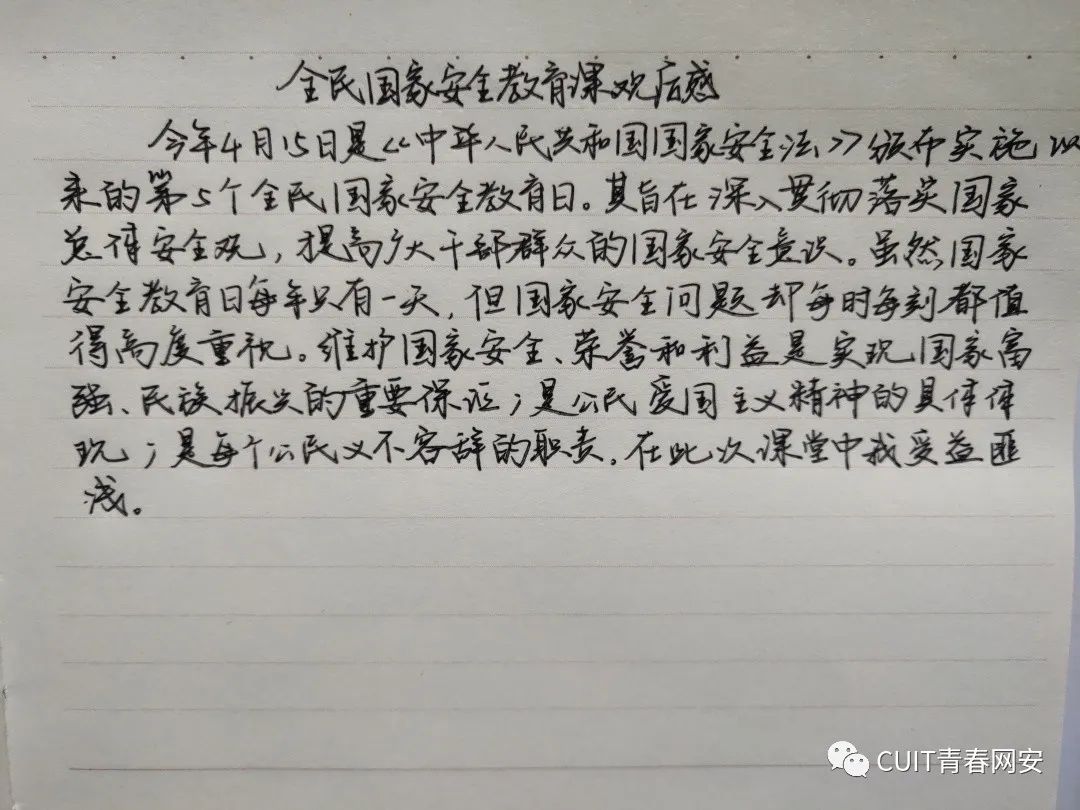 全民国家安全教育课观后感
今年4月15日是《中华人民共和国国家安全法》颁布实施以
来的第5个全民国家安全教育日。其旨在深入贯彻落实国家
总体安全观，提高广大干部群众的国家安全意识。虽然国家
安全教育日每年只有一天，但国家安全问题却每时每刻都值
得高度重视。维护国家安全、荣誉和利益是实现国家富
强、民族振兴的重要保证；是公民爱国主义精神的具体体
现；是每个公民义不容辞的职责。在此次课堂中我受益匪
浅。
CUIT青春网安